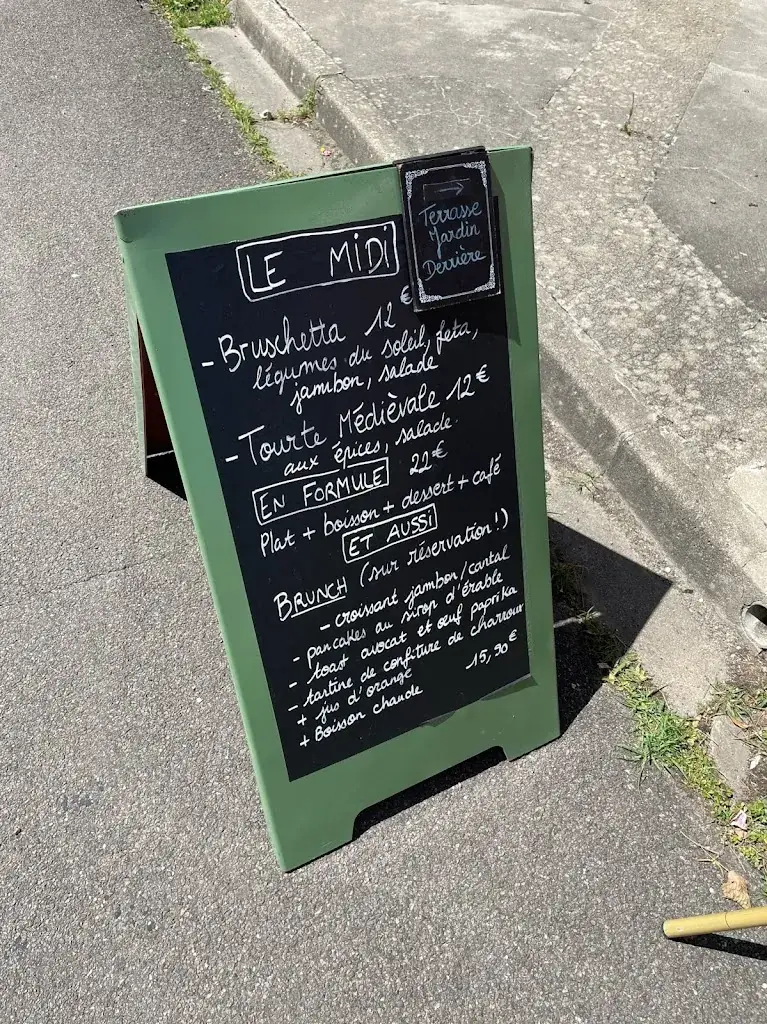 LE MIDI
→
Terrasse
Jardin
Derrière
- Bruschetta 12 €
légumes du soleil, feta,
jambon, salade
- Tourte Médièvale 12 €
aux épices, salade.
EN FORMULE 22 €
Plat + boisson + dessert + café
ET AUSSI
BRUNCH (sur réservation !)
- croissant jambon/cantal
- pancakes au sirop d'érable
- toast avocat et œuf paprika
- tartine de confiture de charroux
+ jus d'orange
+ Boisson chaude 15,90 €